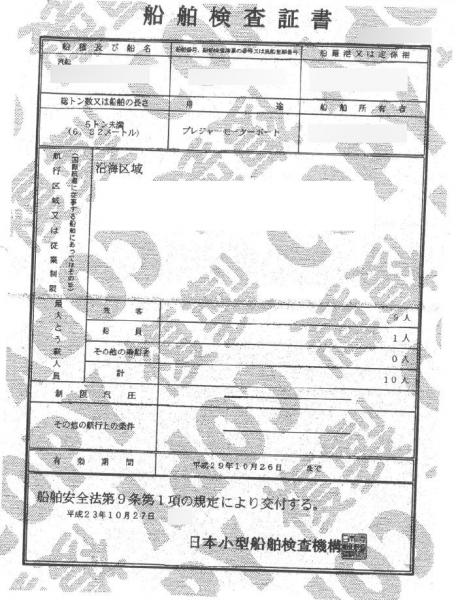 船舶検査証書
船種及び船名
船舶番号、船舶検査済票の番号又は漁船登録番号
船籍港又は定係港
汽船
総トン数又は船舶の長さ
用途
船舶所有者
5トン未満
(6.32メートル)
プレジャーモーターボート
航行区域又は従業制限
(国際航海に従事する船舶にあってはその旨)
沿海区域
最大とう載人員
旅客
9人
船員
1人
その他の乗船者
0人
計
10人
制限汽圧
その他の航行上の条件
有効期間
平成29年10月26日 まで
船舶安全法第9条第1項の規定により交付する。
平成23年10月27日
日本小型船舶検査機構
複製
COPY